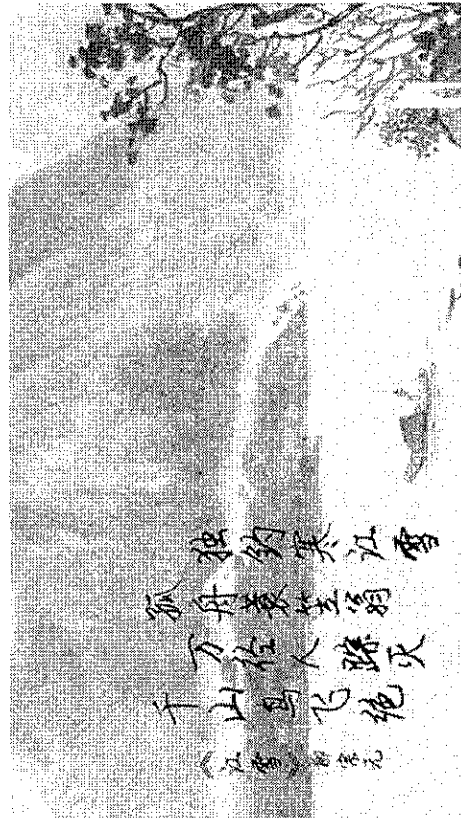 《江雪》柳宗元
千山鸟飞绝
万径人踪灭
孤舟蓑笠翁
独钓寒江雪